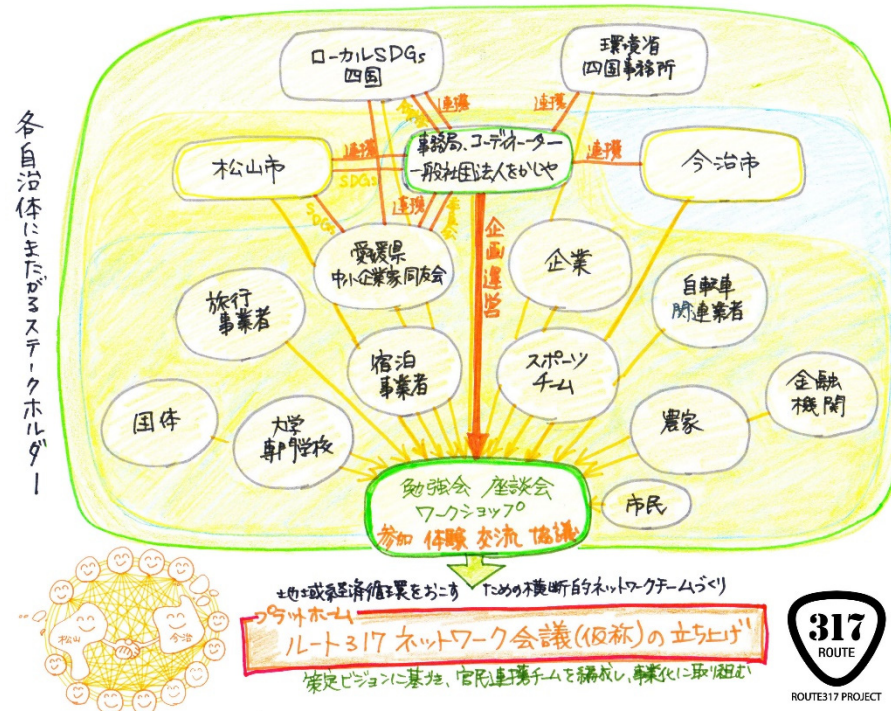 各自治体にまたがるステークホルダー
ローカルSDGs
四国
環境省
四国事務所
連携
連携
松山市
連携
SDGs
事務局、コーディネーター
一般社団法人をかしや
連携
今治市
SDGs
連携
企画運営
愛媛県
中小企業家同友会
企業
旅行
事業者
自転車
関連業者
宿泊
事業者
スポーツ
チーム
金融
機関
団体
大学
専門学校
農家
市民
勉強会 座談会
ワークショップ
参加 体験 交流 協議
地域経済循環をおこす ための横断的ネットワークチームづくり
プラットホーム
ルート317ネットワーク会議(仮称)の立ち上げ
策定ビジョンに基づき、官民連携チームを構成し、事業化に取り組む
松山
今治
317
ROUTE
ROUTE317 PROJECT